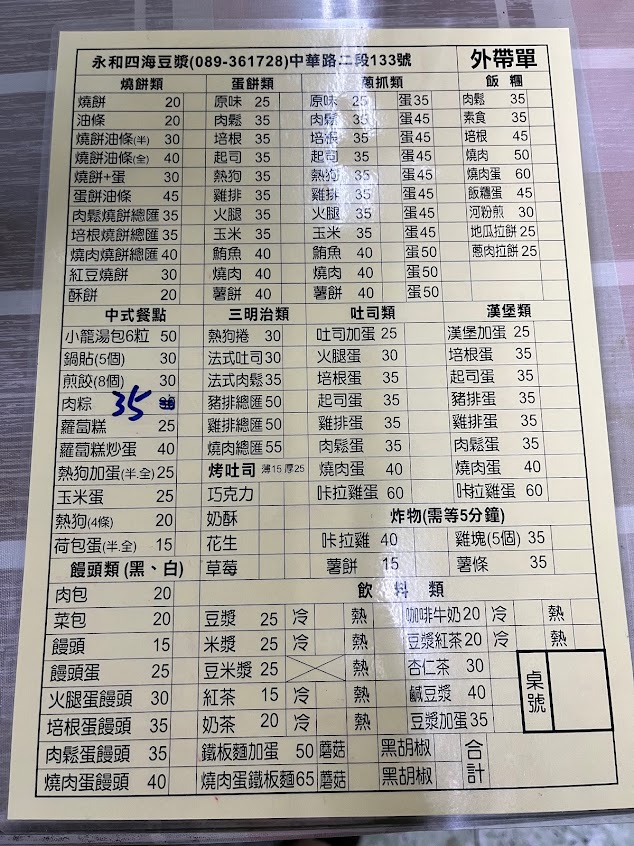 永和四海豆漿(089-361728)中華路二段133號 外帶單
燒餅類 蛋餅類 蔥抓類 飯糰
燒餅 20 原味 25 原味 25 蛋35 肉鬆 35
油條 20 肉鬆 35 肉鬆 35 蛋45 素食 35
燒餅油條(半) 30 培根 35 培根 35 蛋45 培根 45
燒餅油條(全) 40 起司 35 起司 35 蛋45 燒肉 50
燒餅+蛋 30 熱狗 35 熱狗 35 蛋45 燒肉蛋 60
蛋餅油條 45 雞排 35 雞排 35 蛋45 飯糰蛋 45
肉鬆燒餅總匯 35 火腿 35 火腿 35 蛋45 河粉煎 30
培根燒餅總匯 35 玉米 35 玉米 35 蛋45 地瓜拉餅 25
燒肉燒餅總匯 40 鮪魚 40 鮪魚 40 蛋50 蔥肉拉餅 25
紅豆燒餅 30 燒肉 40 燒肉 40 蛋50
酥餅 20 薯餅 40 薯餅 40 蛋50
中式餐點 三明治類 吐司類 漢堡類
小籠湯包6粒 50 熱狗捲 30 吐司加蛋 25 漢堡加蛋 25
鍋貼(5個) 30 法式吐司 30 火腿蛋 30 培根蛋 35
煎餃(8個) 30 法式肉鬆 35 培根蛋 35 起司蛋 35
肉粽 35 豬排總匯 50 起司蛋 35 豬排蛋 35
蘿蔔糕 25 雞排總匯 50 雞排蛋 35 雞排蛋 35
蘿蔔糕炒蛋 40 燒肉總匯 55 肉鬆蛋 35 肉鬆蛋 35
熱狗加蛋(半.全) 25 烤吐司 薄15 厚25 燒肉蛋 40 燒肉蛋 40
玉米蛋 25 巧克力 咔拉雞蛋 60 咔拉雞蛋 60
熱狗(4條) 20 奶酥 炸物(需等5分鐘)
荷包蛋(半.全) 15 花生 咔拉雞 40 雞塊(5個) 35
饅頭類 (黑、白) 草莓 薯餅 15 薯條 35
肉包 20 飲料類
菜包 20 豆漿 25 冷 熱 咖啡牛奶 20 冷 熱
饅頭 15 米漿 25 冷 熱 豆漿紅茶 20 冷 熱
饅頭蛋 25 豆米漿 25 熱 杏仁茶 30 桌號
火腿蛋饅頭 30 紅茶 15 冷 熱 鹹豆漿 40
培根蛋饅頭 35 奶茶 20 冷 熱 豆漿加蛋 35
肉鬆蛋饅頭 35 鐵板麵加蛋 50 蘑菇 黑胡椒 合計
燒肉蛋饅頭 40 燒肉蛋鐵板麵 65 蘑菇 黑胡椒